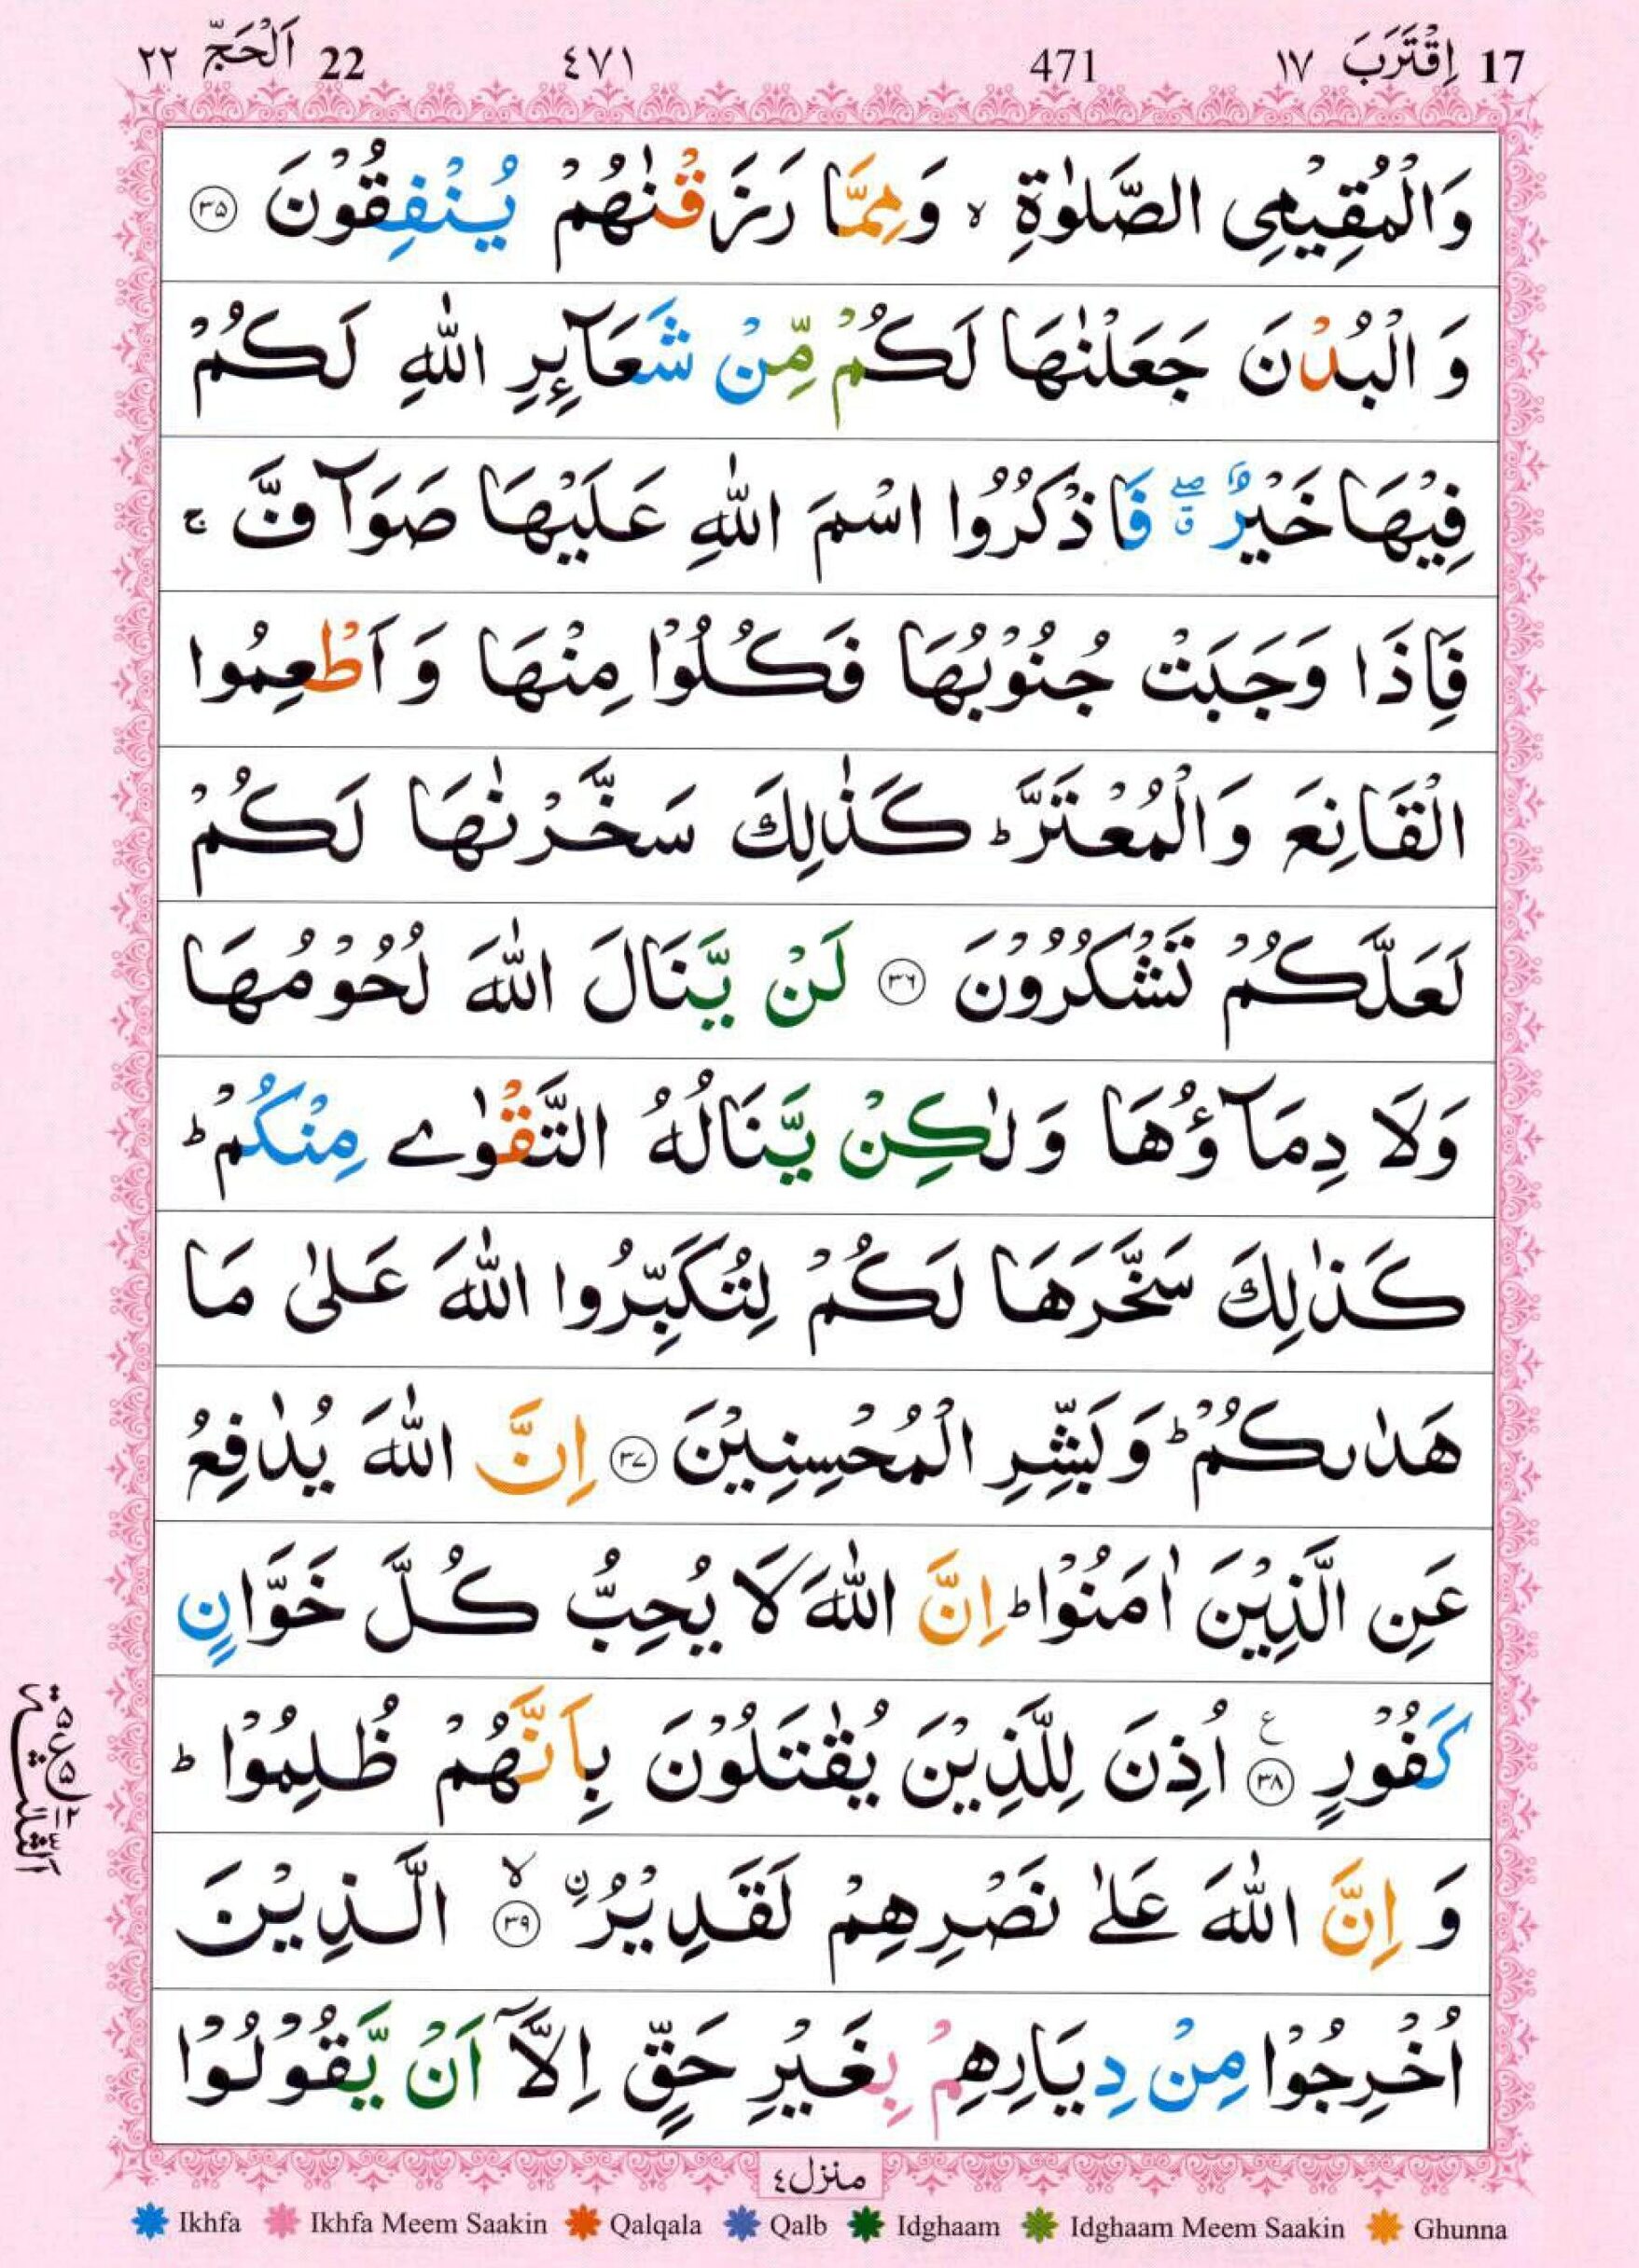 17 اِقْتَرَبَ ١٧ 471 ٤٧١ 22 اَلْحَجّ ٢٢
وَالْمُقِيْمِى الصَّلٰوةِ ۙ وَمِمَّا رَزَقْنٰهُمْ يُنْفِقُوْنَ ﴿۳۵﴾
وَ الْبُدْنَ جَعَلْنٰهَا لَكُمْ مِّنْ شَعَآئِرِ اللّٰهِ لَكُمْ
فِيْهَا خَيْرٌ ۖۗ فَاذْكُرُوا اسْمَ اللّٰهِ عَلَيْهَا صَوَآفَّ ۚ
فَاِذَا وَجَبَتْ جُنُوْبُهَا فَكُلُوْا مِنْهَا وَ اَطْعِمُوا
الْقَانِعَ وَالْمُعْتَرَّ ؕ كَذٰلِكَ سَخَّرْنٰهَا لَكُمْ
لَعَلَّكُمْ تَشْكُرُوْنَ ﴿۳۶﴾ لَنْ يَّنَالَ اللّٰهَ لُحُوْمُهَا
وَلَا دِمَآؤُهَا وَ لٰكِنْ يَّنَالُهُ التَّقْوٰے مِنْكُمْ ؕ
كَذٰلِكَ سَخَّرَهَا لَكُمْ لِتُكَبِّرُوا اللّٰهَ عَلٰى مَا
هَدٰىكُمْ ؕ وَبَشِّرِ الْمُحْسِنِيْنَ ﴿۳۷﴾ اِنَّ اللّٰهَ يُدٰفِعُ
عَنِ الَّذِيْنَ اٰمَنُوْا ؕ اِنَّ اللّٰهَ لَا يُحِبُّ كُلَّ خَوَّانٍ
كَفُوْرٍ ﴿۳۸﴾ ع اُذِنَ لِلَّذِيْنَ يُقٰتَلُوْنَ بِاَنَّهُمْ ظُلِمُوْا ؕ
وَ اِنَّ اللّٰهَ عَلٰے نَصْرِهِمْ لَقَدِيْرُ ۨ ﴿۳۹﴾ ۙ الَّذِيْنَ
اُخْرِجُوْا مِنْ دِيَارِهِمْ بِغَيْرِ حَقٍّ اِلَّاۤ اَنْ يَّقُوْلُوْا
منزل ٤
Ikhfa Ikhfa Meem Saakin Qalqala Qalb Idghaam Idghaam Meem Saakin Ghunna